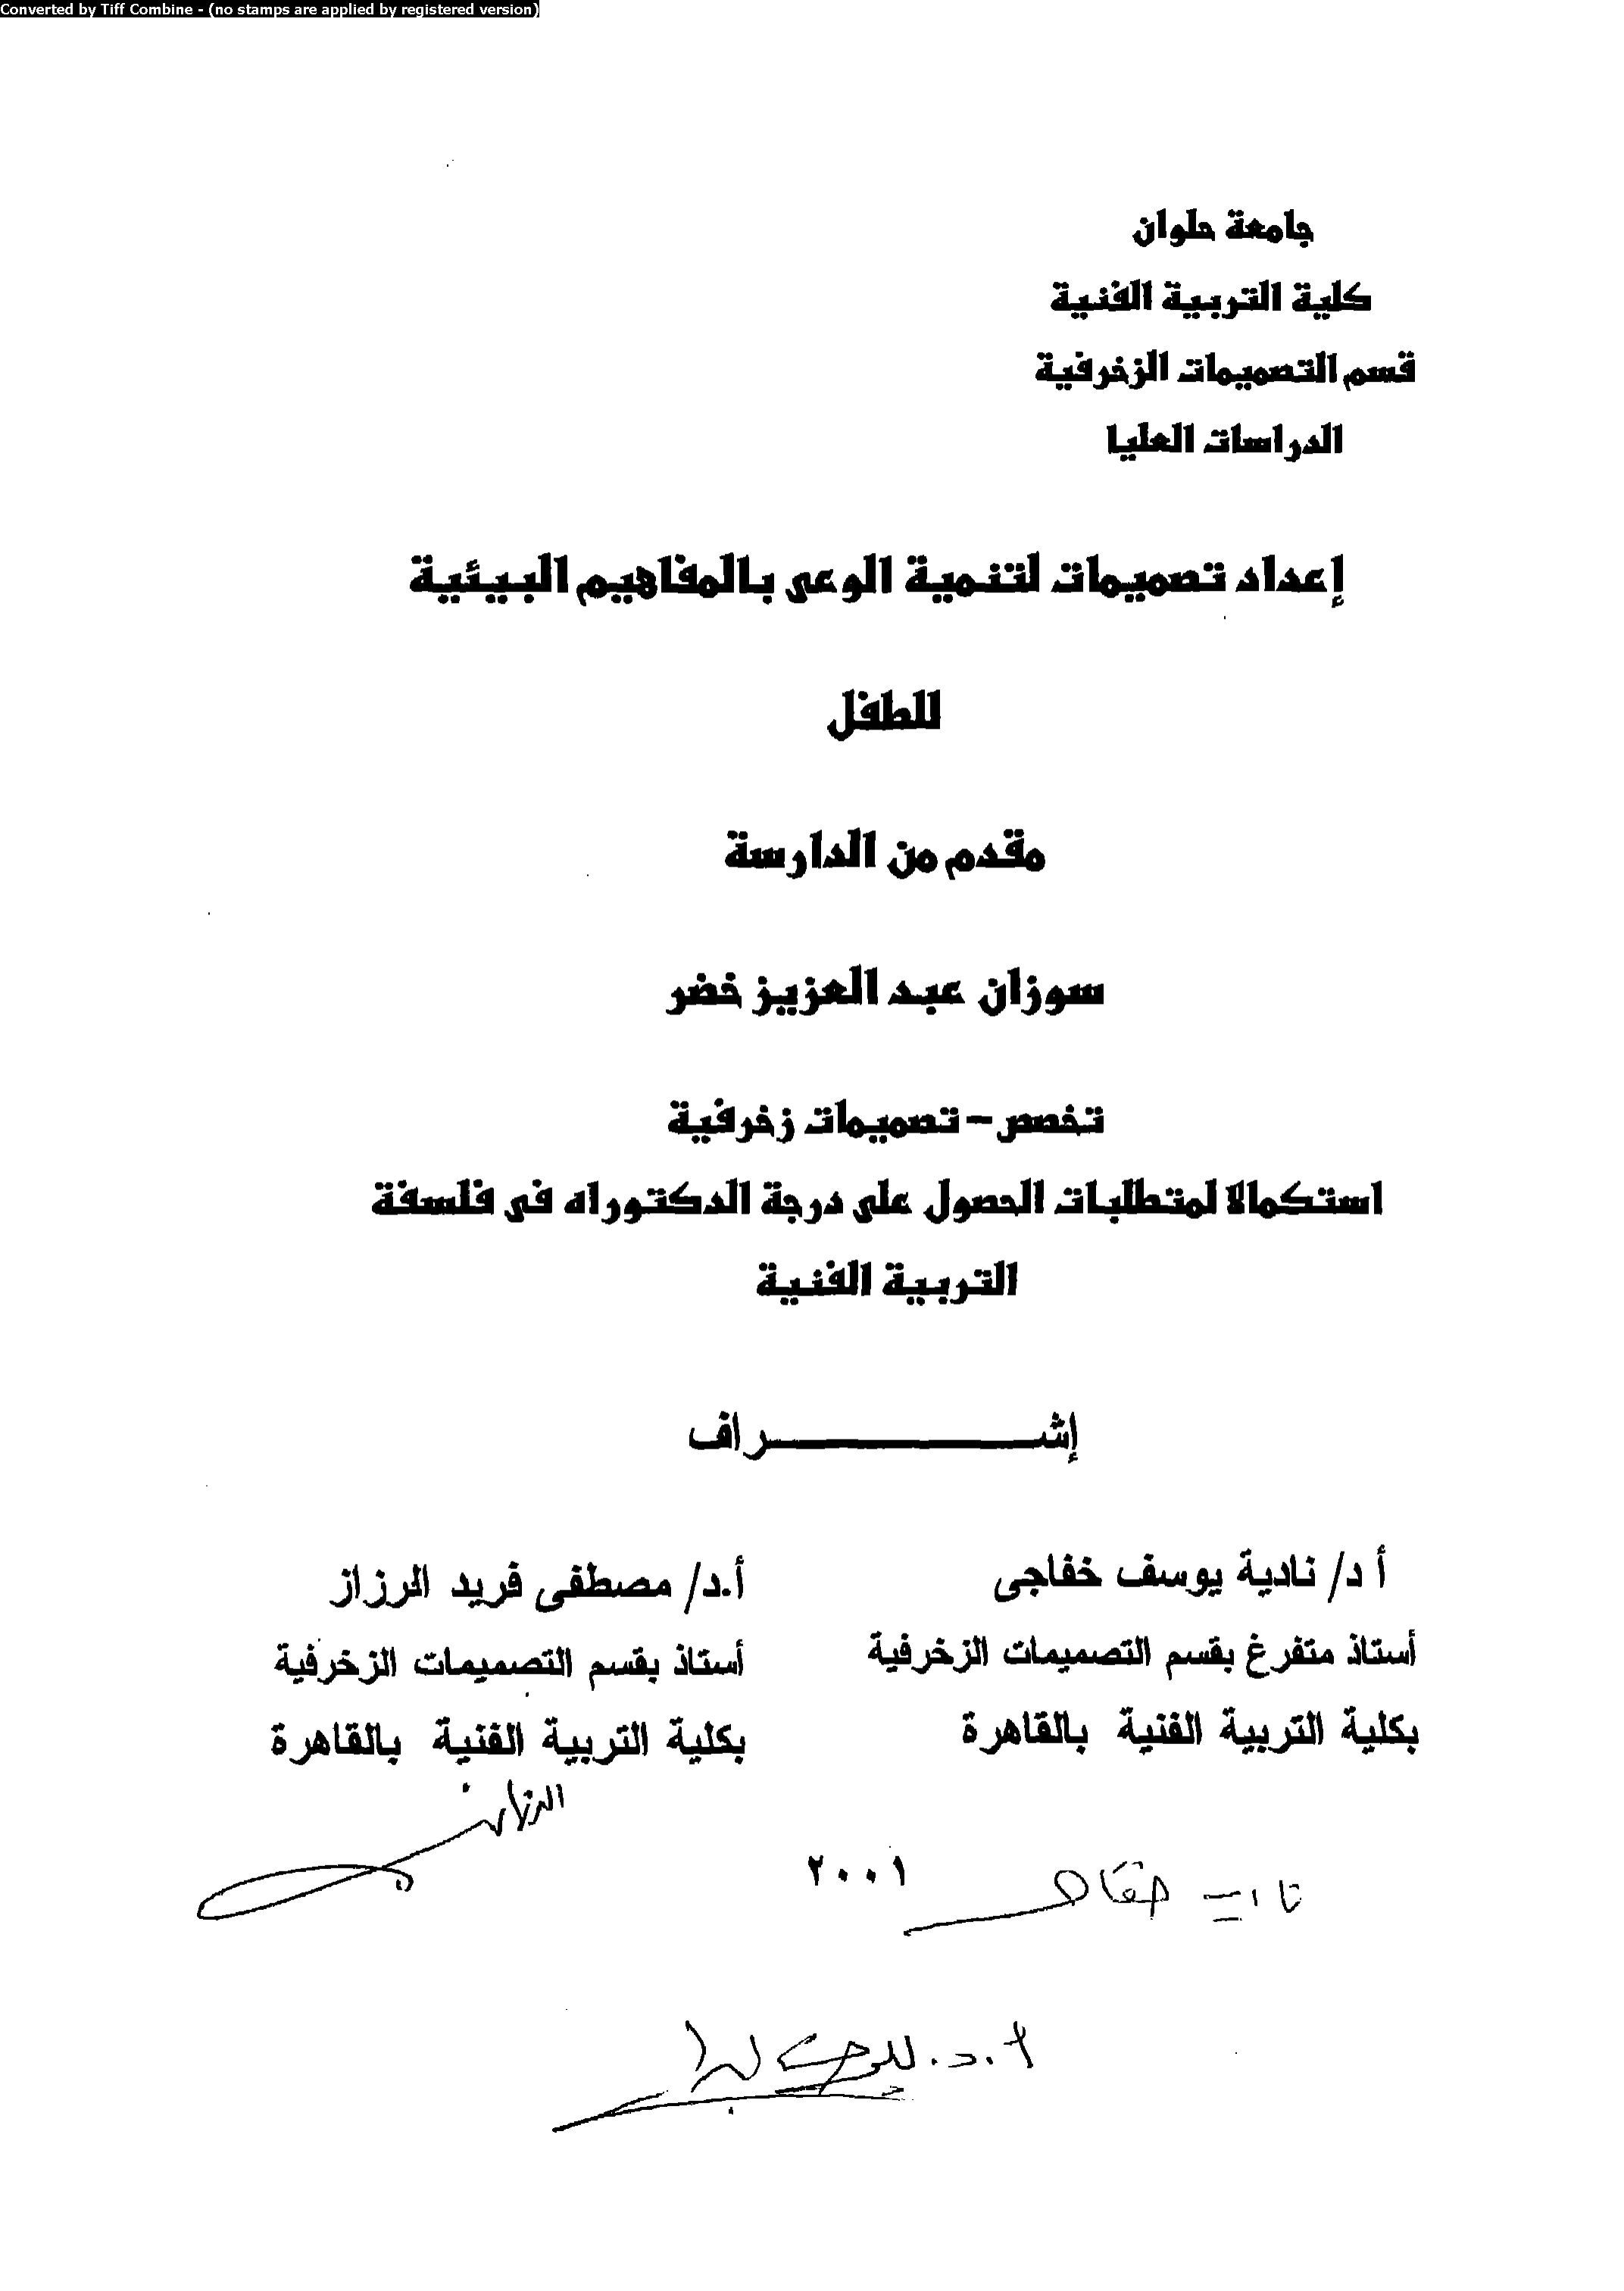 Converted by Tiff Combine - (no stamps are applied by registered version)
جامعة حلوان
كلية التربية الفنية
قسم التصميمات الزخرفية
الدراسات العليا
إعداد تصميمات لتنمية الوعى بالمفاهيم البيئية
للطفل
مقدم من الدارسة
سوزان عبد العزيز خضر
تخصص – تصميمات زخرفية
استكمالا لمتطلبات الحصول على درجة الدكتوراه فى فلسفة
التربية الفنية
إشـــــــــــــراف
أ د/ نادية يوسف خفاجى
أستاذ متفرغ بقسم التصميمات الزخرفية
بكلية التربية الفنية بالقاهرة
أ.د/ مصطفى فريد الرزاز
أستاذ بقسم التصميمات الزخرفية
بكلية التربية الفنية بالقاهرة
الرزاز
٢٠٠١
أ.د.